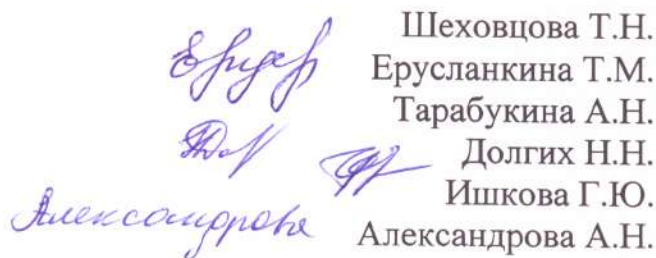 Шеховцова Т.Н.
Ерусланкина Т.М.
Тарабукина А.Н.
Долгих Н.Н.
Ишкова Г.Ю.
Александрова Александрова А.Н.